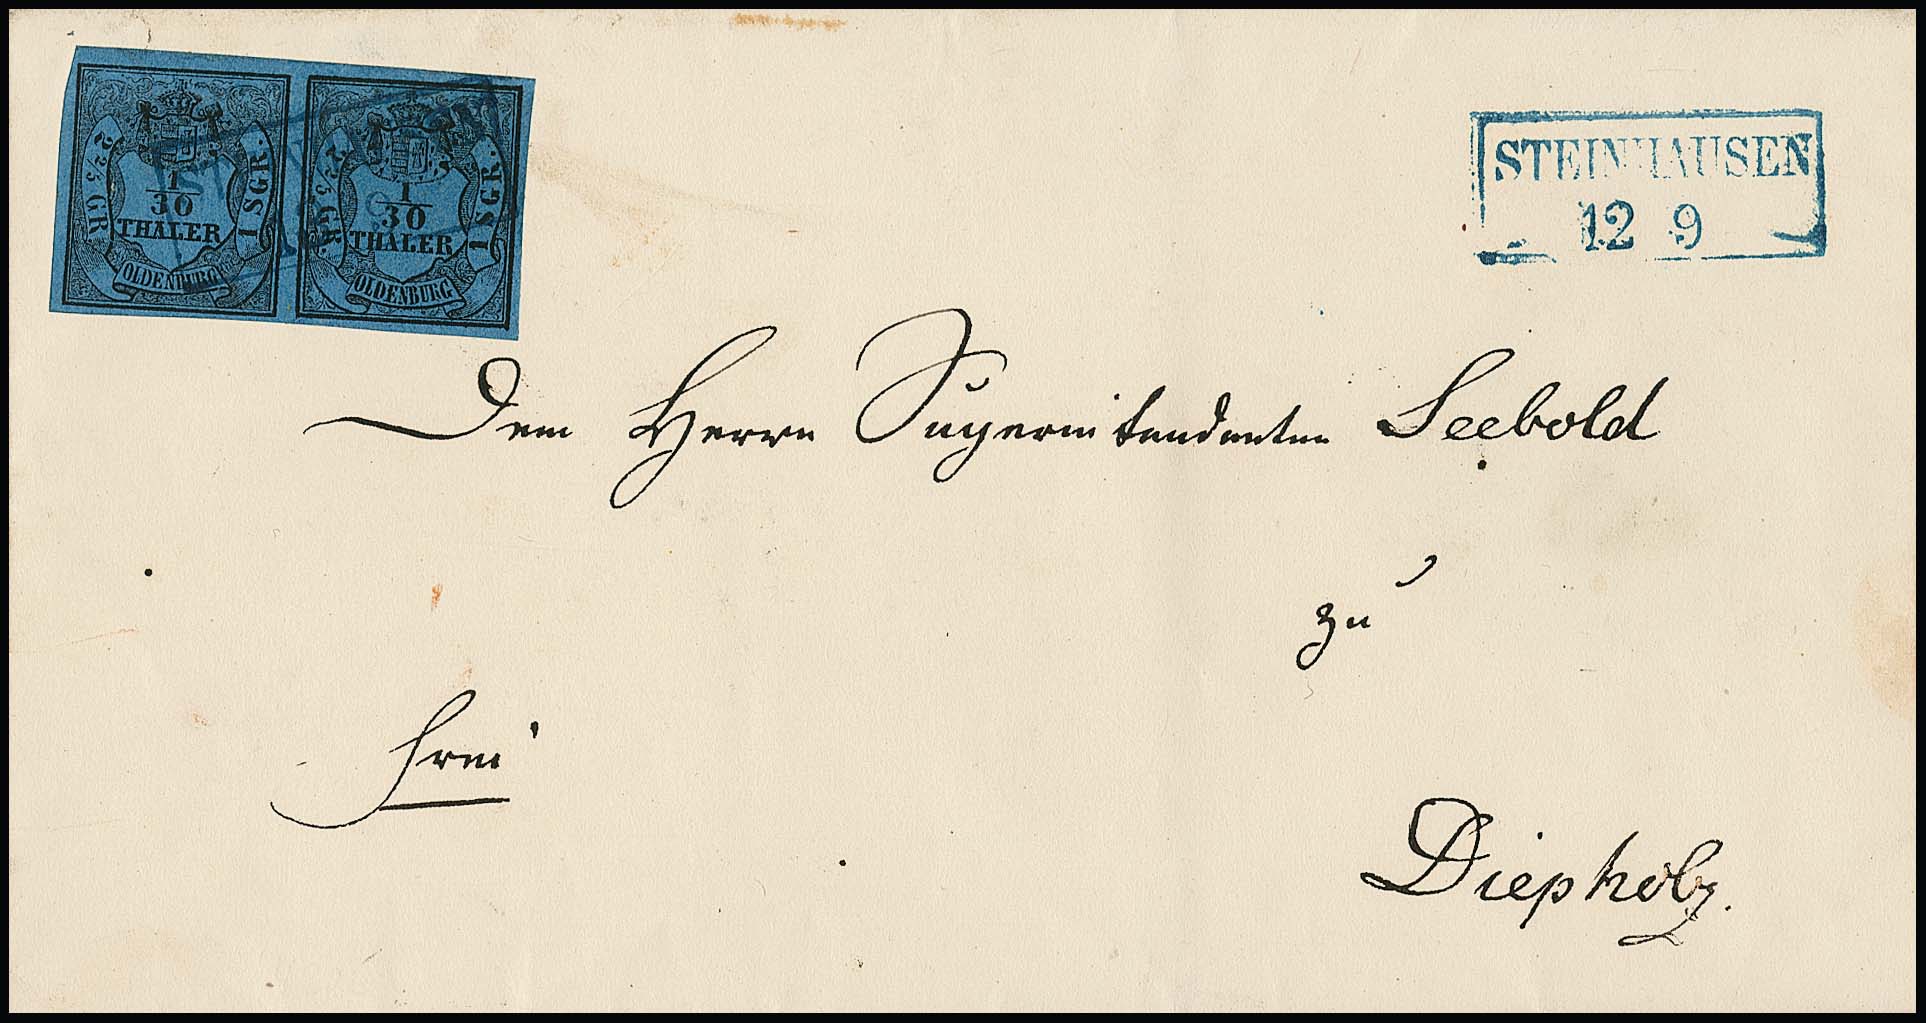 2 2/5 GR. 1/30 THALER 1 SGR. OLDENBURG
2 2/5 GR. 1/30 THALER 1 SGR. OLDENBURG
STEINHAUSEN
12 9
Dem Herrn Superintendenten Seebold
zu
frei
Diepholz.